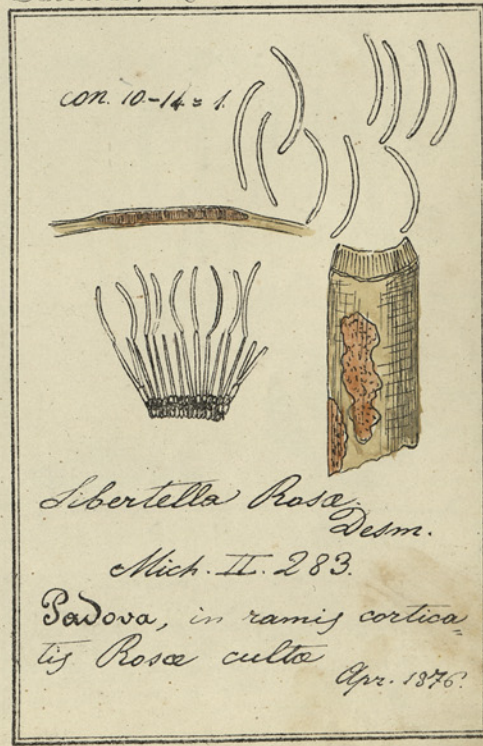 con. 10-14 = 1.
Libertella Rosæ
Desm.
Mich. II. 283.
Padova, in ramis cortica=
tis Rosæ cultæ
Apr. 1876.